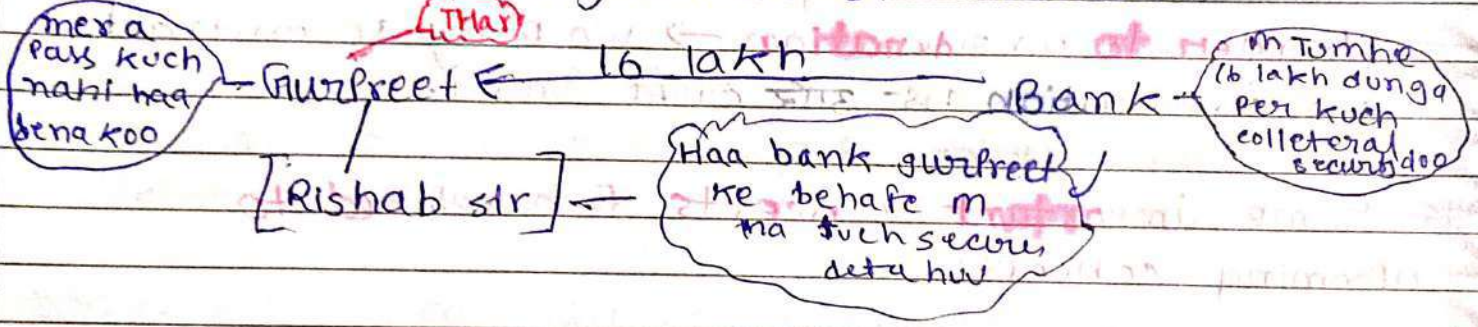 THar
mera
pass kuch
nahi haa
dena koo
Gurpreet
16 lakh
Bank
m Tumhe
16 lakh dunga
per kuch
colleteral
doo
[Rishab sir]
Haa bank gurpreet
ke behafe m
ma kuch
deta huu